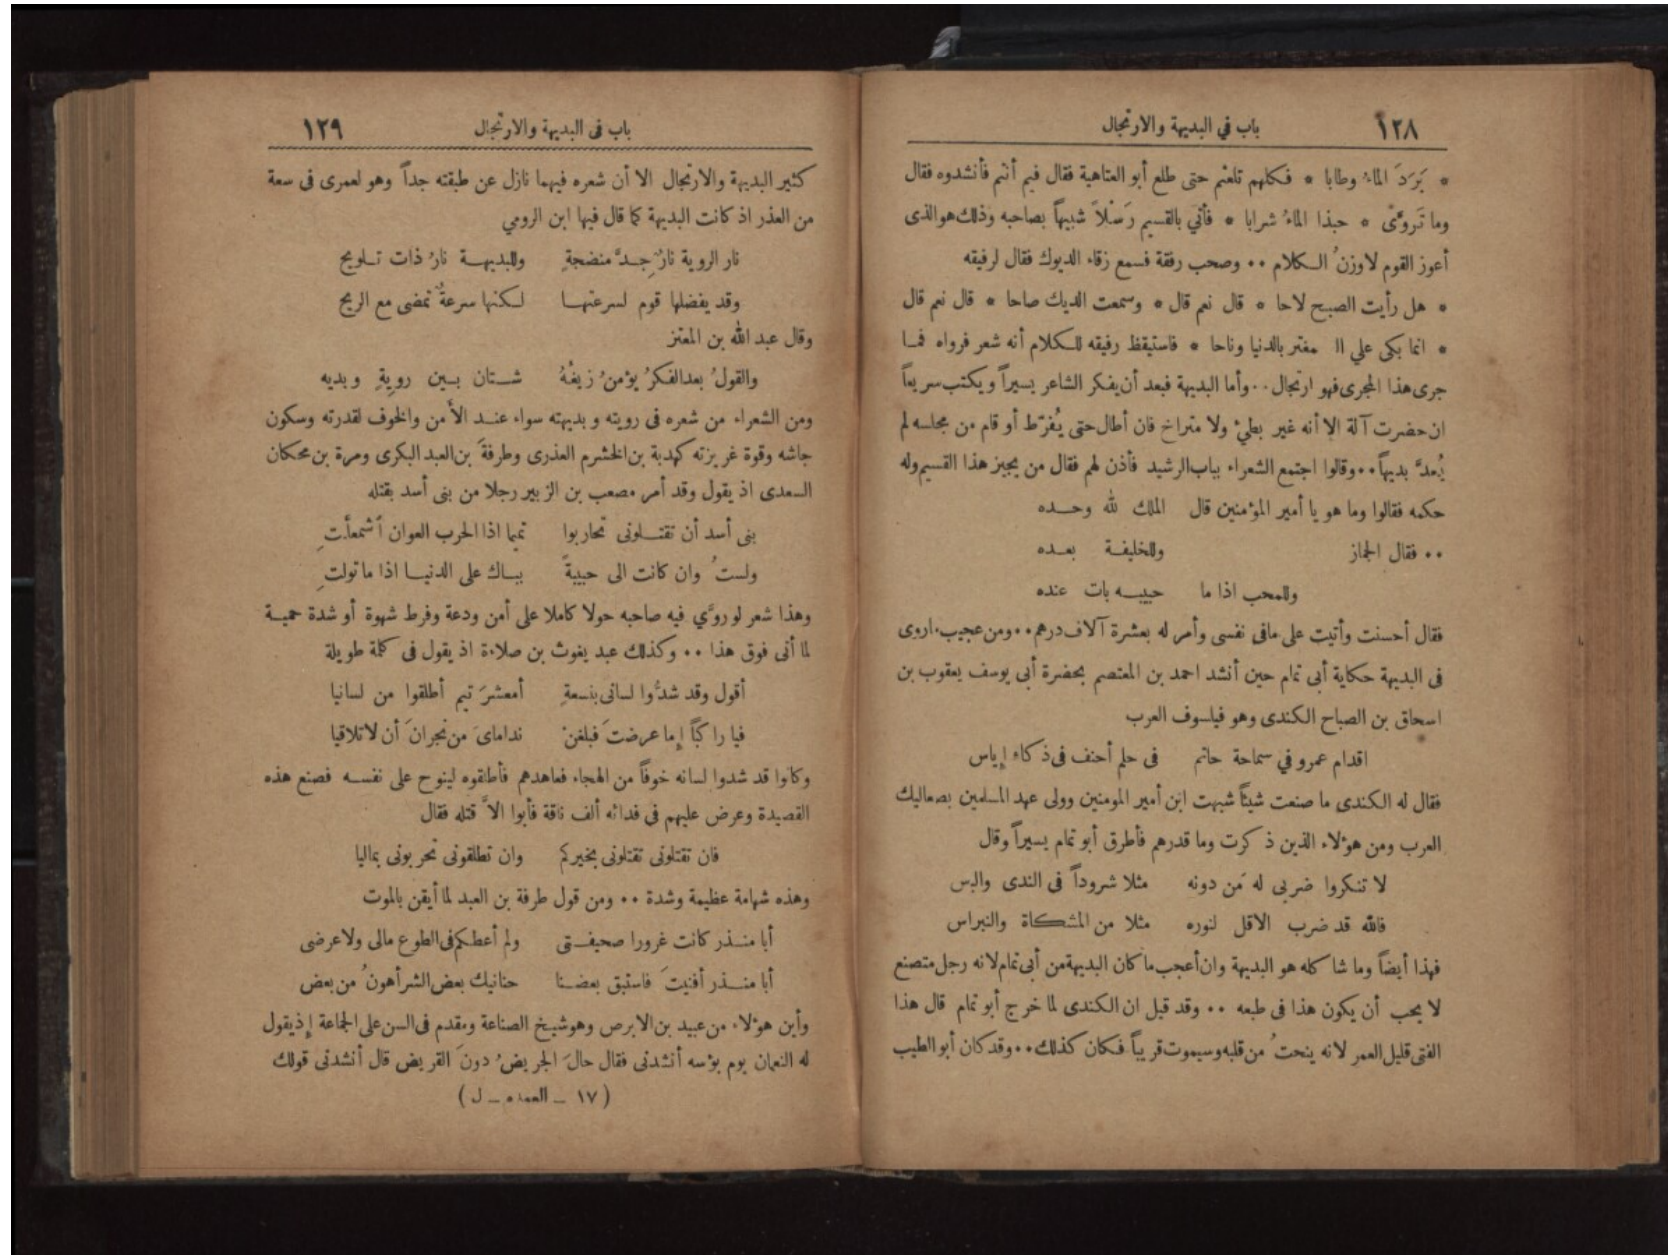 ١٢٨
باب في البديهة والارتجال
* بَرَدَ الماءُ وطابا * فكلهم تلعثم حتى طلع أبو العتاهية فقال فيم أنتم فأنشدوه فقال
وما تَروَّى * حبذا الماءُ شرابا * فأتي بالقسيم رَسْلاً شبيهاً بصاحبه وذلك هو الذى
أعوز القوم لا وزنُ الكلام ٠٠ وصحب رفقة فسمع زقاء الديوك فقال لرفيقه
* هل رأيت الصبح لاحا * قال نعم قال * وسمعت الديك صاحا * قال نعم قال
* انما بكى علي ال مغتر بالدنيا وناحا * فاستيقظ رفيقه للكلام أنه شعر فرواه فمـا
جرى هذا المجرى فهو ارتجال ٠٠ وأما البديهة فبعد أن يفكر الشاعر يسيراً ويكتب سريعاً
ان حضرت آلة الا أنه غير بطيء ولا متراخ فان أطال حتى يُفرّط أو قام من مجلسه لم
يُعدَّ بديهاً ٠٠ وقالوا اجتمع الشعراء بباب الرشيد فأذن لهم فقال من يجيز هذا القسيم وله
حكمه فقالوا وما هو يا أمير المؤمنين قال الملك لله وحـده
٠٠ فقال الجماز وللخليفة بعـده
وللمحب اذا ما حبيبـه بات عنده
فقال أحسنت وأتيت على مافى نفسى وأمر له بعشرة آلاف درهم ٠٠ ومن عجيب ماروى
فى البديهة حكاية أبى تمام حين أنشد احمد بن المعتصم بحضرة أبى يوسف يعقوب بن
اسحاق بن الصباح الكندى وهو فيلسوف العرب
اقدام عمرو في سماحة حاتم فى حلم أحنف فى ذكاء إياس
فقال له الكندى ما صنعت شيئاً شبهت ابن أمير المومنين وولى عهد المسلمين بصعاليك
العرب ومن هؤلاء الذين ذكرت وما قدرهم فأطرق أبو تمام يسيراً وقال
لا تنكروا ضربى له مَن دونه مثلا شروداً فى الندى والبس
فالله قد ضرب الاقل لنوره مثلا من المشكاة والنبراس
فهذا أيضاً وما شاكله هو البديهة وان أعجب ما كان البديهة من أبى تمام لانه رجل متصنع
لا يحب أن يكون هذا فى طبعه ٠٠ وقد قيل ان الكندى لما خرج أبو تمام قال هذا
الفتى قليل العمر لانه ينحتُ من قلبه وسيموت قريباً فكان كذلك ٠٠ وقد كان أبو الطيب
باب فى البديهة والارتجال
١٢٩
كثير البديهة والارتجال الا أن شعره فيهما نازل عن طبقته جداً وهو لعمرى فى سعة
من العذر اذ كانت البديهة كما قال فيها ابن الرومي
نار الروية نارٌ جـدَّ منضجةٍ وللبديهـة نارُ ذات تـلويح
وقد يفضلها قوم لسرعتهـا لـكنها سرعةٌ تمضى مع الريح
وقال عبد الله بن المعتز
والقولُ بعد الفكرُ يؤمنُ زيغُهُ شـتان بـين رويةٍ وبديه
ومن الشعراء من شعره فى رويته وبديهته سواء عنـد الأمن والخوف لقدرته وسكون
جاشه وقوة غريزته كهدبة بن الخشرم العذرى وطرفةَ بن العبد البكرى ومرة بن محكان
السعدى اذ يقول وقد أمر مصعب بن الزبير رجلا من بنى أسد بقتله
بنى أسد أن تقتـلونى تحاربوا تميما اذا الحرب العوان اشمعلَّتِ
ولستُ وان كانت الى حبيبةً ببـاك على الدنيـا اذا ما تولتِ
وهذا شعر لو روَّي فيه صاحبه حولا كاملا على أمن ودعة وفرط شهوة أو شدة حميـة
لما أتى فوق هذا ٠٠ وكذلك عبد يغوث بن صلاءة اذ يقول فى كلمة طويلة
أقول وقد شدُّوا لسانى بنسعةٍ أمعشرَ تيم أطلقوا من لسانيا
فيا راكبًا إما عرضتَ فبلغنْ نداماىَ من نجرانَ أن لا تلاقيا
وكانوا قد شدوا لسانه خوفاً من الهجاء فعاهدهم فأطلقوه لينوح على نفسـه فصنع هذه
القصيدة وعرض عليهم فى فدائه ألف ناقة فأبوا الاَّ قتله فقال
فان تقتلونى تقتلونى بخيركم وان تطلقونى تحربونى بماليا
وهذه شهامة عظيمة وشدة ٠٠ ومن قول طرفة بن العبد لما أيقن بالموت
أبا منـذر كانت غرورا صحيفـتى ولم أعطكم فى الطوع مالى ولا عرضى
أبا منـذر أفنيتَ فاستبق بعضـنا حنانيك بعض الشر أهونُ من بعض
وأين هؤلاء من عبيد بن الابرص وهو شيخ الصناعة ومقدم فى السن على الجماعة إذ يقول
له النعمان يوم بؤسه أنشدنى فقال حالَ الجريضُ دونَ القريض قال أنشدنى قولك
( ١٧ ـ العمده ـ ل )